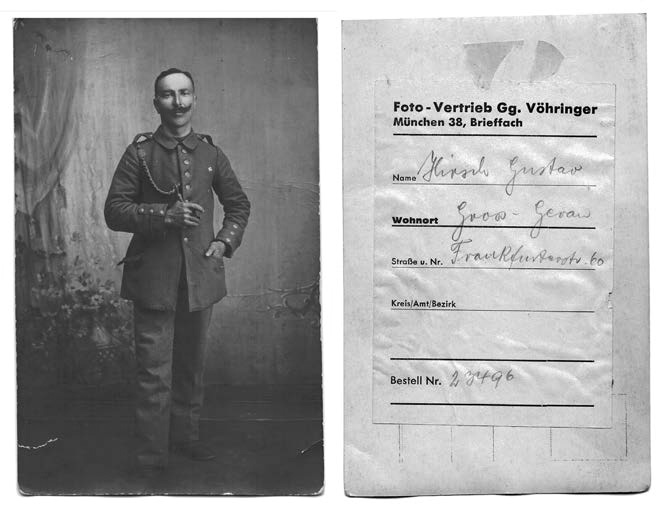 Foto-Vertrieb Gg. Vöhringer
München 38, Brieffach
Name Hirsch Gustav
Wohnort Gross-Gerau
Straße u. Nr. Frankfurterstr. 60
Kreis/Amt/Bezirk
Bestell Nr. 23496